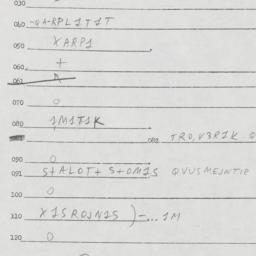 030
040 -QA-RPL1T1T
050 XARP1
060 +
061
070 0
080 1M1T1K
083 TRO,V3P1K Q
090 0
091 S+ALOT+ S+OM1S QVUSMEJNTIP
100 0
110 X1SROJN1S )-...1M
120 0